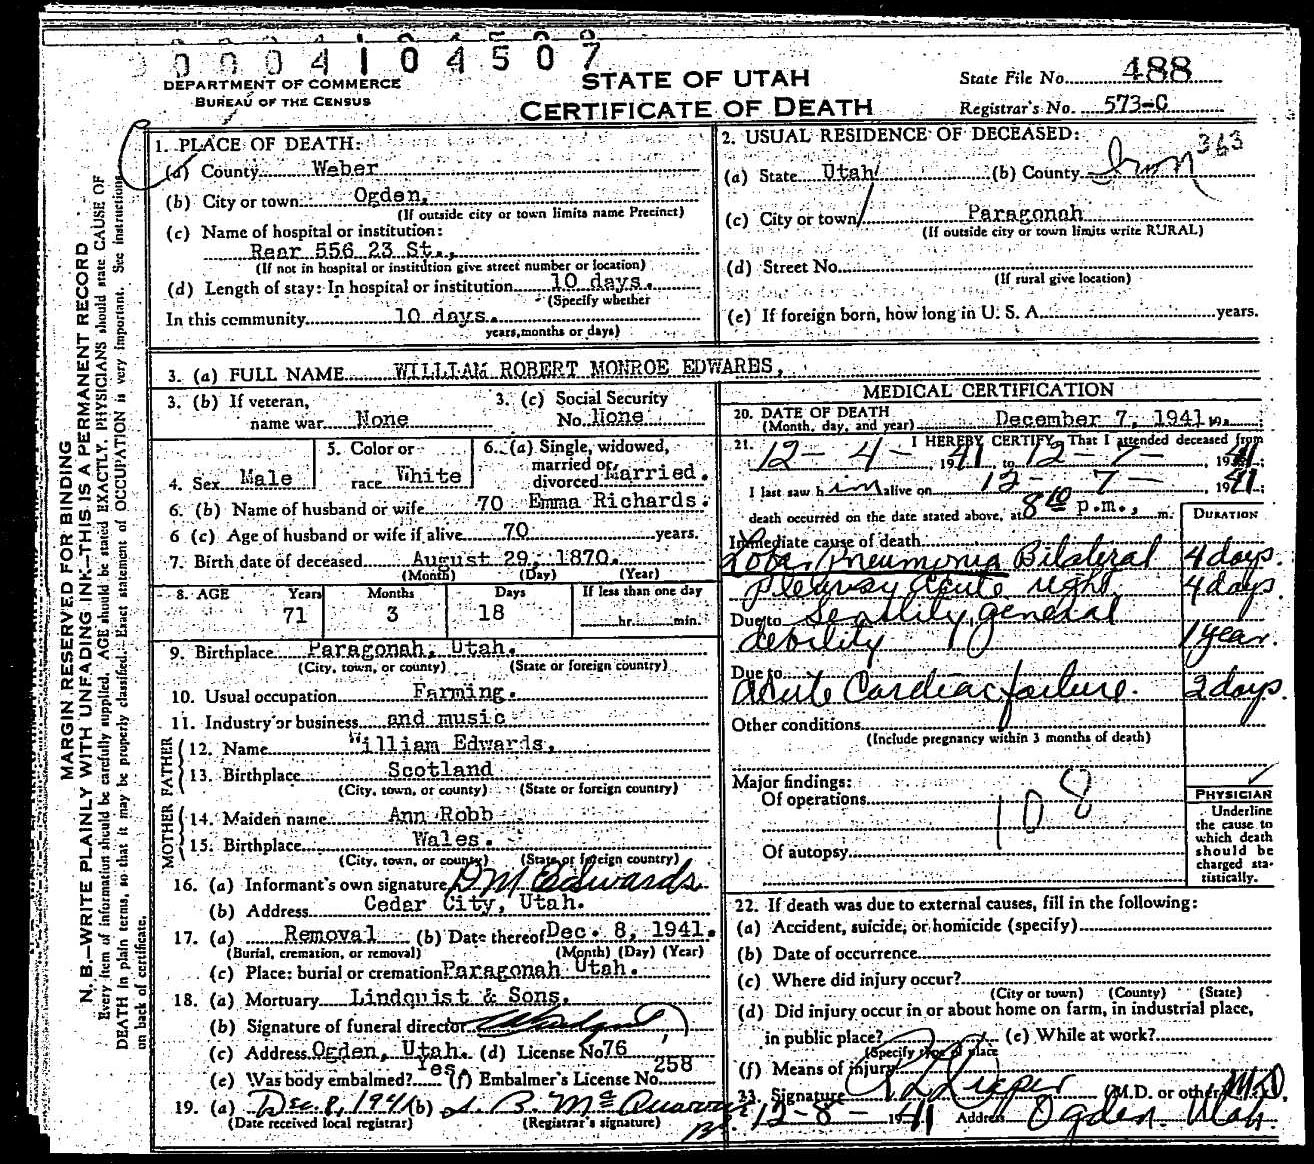 0004104507
DEPARTMENT OF COMMERCE
BUREAU OF THE CENSUS
STATE OF UTAH
CERTIFICATE OF DEATH
State File No. 488
Registrar's No. 573-C
MARGIN RESERVED FOR BINDING
N. B.—WRITE PLAINLY WITH UNFADING INK—THIS IS A PERMANENT RECORD
Every item of information should be carefully supplied. AGE should be stated EXACTLY. PHYSICIANS should state CAUSE OF
DEATH in plain terms, so that it may be properly classified. Exact statement of OCCUPATION is very important. See instructions
on back of certificate.
1. PLACE OF DEATH:
(a) County Weber
(b) City or town Ogden,
(If outside city or town limits name Precinct)
(c) Name of hospital or institution:
Rear 556 23 St.,
(If not in hospital or institution give street number or location)
(d) Length of stay: In hospital or institution 10 days.
(Specify whether
In this community 10 days.
years, months or days)
2. USUAL RESIDENCE OF DECEASED:
363
(a) State Utah (b) County Iron
(c) City or town Paragonah
(If outside city or town limits write RURAL)
(d) Street No.
(If rural give location)
(e) If foreign born, how long in U. S. A. years.
3. (a) FULL NAME WILLIAM ROBERT MONROE EDWARDS,
3. (b) If veteran, name war None
3. (c) Social Security No. None
4. Sex Male
5. Color or race White
6. (a) Single, widowed, married or divorced Married.
6. (b) Name of husband or wife 70 Emma Richards.
6 (c) Age of husband or wife if alive 70 years.
7. Birth date of deceased August 29, 1870.
(Month) (Day) (Year)
8. AGE Years Months Days If less than one day
71 3 18 hr. min.
9. Birthplace Paragonah, Utah.
(City, town, or county) (State or foreign country)
10. Usual occupation Farming.
11. Industry or business and music
FATHER
12. Name William Edwards,
13. Birthplace Scotland
(City, town, or county) (State or foreign country)
MOTHER
14. Maiden name Ann Robb
15. Birthplace Wales.
(City, town, or county) (State or foreign country)
16. (a) Informant's own signature D M Edwards
(b) Address Cedar City, Utah.
17. (a) Removal (b) Date thereof Dec. 8, 1941.
(Burial, cremation, or removal) (Month) (Day) (Year)
(c) Place: burial or cremation Paragonah Utah.
18. (a) Mortuary Lindquist & Sons.
(b) Signature of funeral director
(c) Address Ogden, Utah. (d) License No 76
(e) Was body embalmed? Yes. (f) Embalmer's License No. 258
19. (a) Dec. 8, 1941 (b)
(Date received local registrar) (Registrar's signature)
MEDICAL CERTIFICATION
20. DATE OF DEATH
(Month, day, and year) December 7, 1941
21. I HEREBY CERTIFY, That I attended deceased from
12- 4- 1941 to 12- 7- 1941;
I last saw him alive on 12- 7- 1941;
death occurred on the date stated above, at 8 10 p.m., m.
DURATION
Immediate cause of death
Lobar Pneumonia Bilateral 4 days.
pleurisy acute right 4 days
Due to Senility, general
debility 1 year.
Due to
acute Cardiac failure. 2 days.
Other conditions
(Include pregnancy within 3 months of death)
Major findings:
Of operations
108
Of autopsy
PHYSICIAN
Underline
the cause to
which death
should be
charged sta-
tistically.
22. If death was due to external causes, fill in the following:
(a) Accident, suicide, or homicide (specify)
(b) Date of occurrence
(c) Where did injury occur?
(City or town) (County) (State)
(d) Did injury occur in or about home on farm, in industrial place,
in public place? (e) While at work?
(Specify type of place
(f) Means of injury
23. Signature (M.D. or other) M.D.
12-8- 1941 Address Ogden. Utah